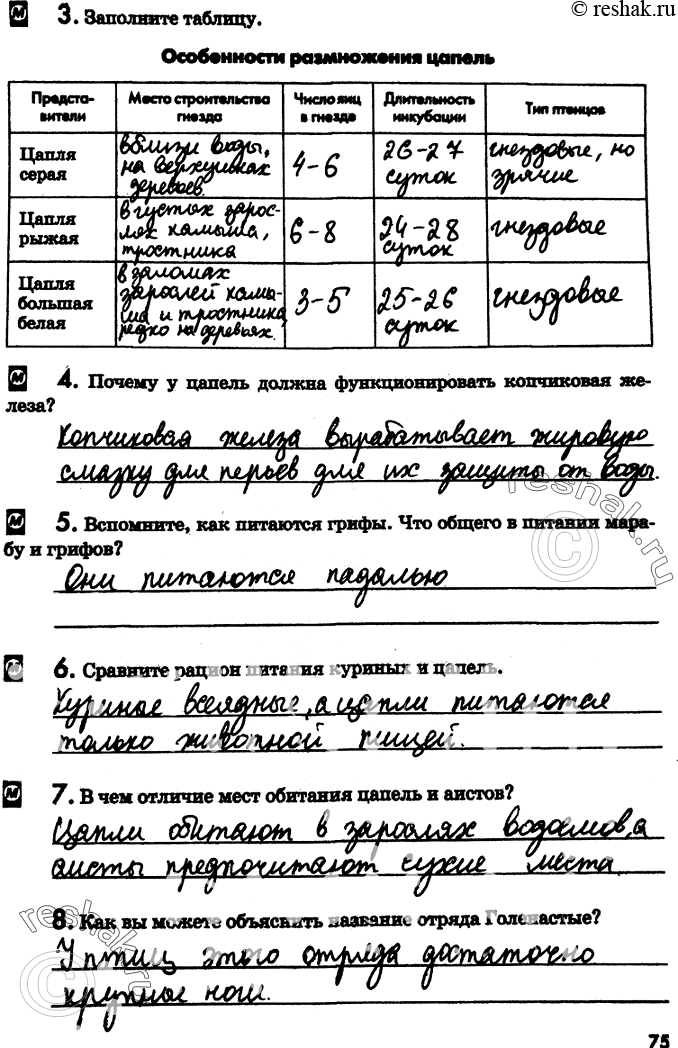 © reshak.ru
3. Заполните таблицу.
Особенности размножения цапель
Предста-
вители
Место строительства
гнезда
Число яиц
в гнезде
Длительность
инкубации
Тип птенцов
Цапля
серая
вблизи воды,
на верхушках
деревьев.
4-6
26-27
суток
гнездовые, но
зрячие
Цапля
рыжая
в густых зарос-
лях камыша,
тростника
6-8
24-28
суток
гнездовые
Цапля
большая
белая
в заломах
зарослей камы-
ша и тростника,
редко на деревьях.
3-5
25-26
суток
гнездовые
4. Почему у цапель должна функционировать копчиковая же-
леза?
Копчиковая железа вырабатывает жировую
смазку для перьев для их защиты от воды.
5. Вспомните, как питаются грифы. Что общего в питании мара-
бу и грифов?
Они питаются падалью
6. Сравните рацион питания куриных и цапель.
Куриные всеядные, а цапли питаются
только животной пищей.
7. В чем отличие мест обитания цапель и аистов?
Цапли обитают в зарослях водоемов, а
аисты предпочитают сухие места.
8. Как вы можете объяснить название отряда Голенастые?
У птиц этого отряда достаточно
крупные ноги.
75